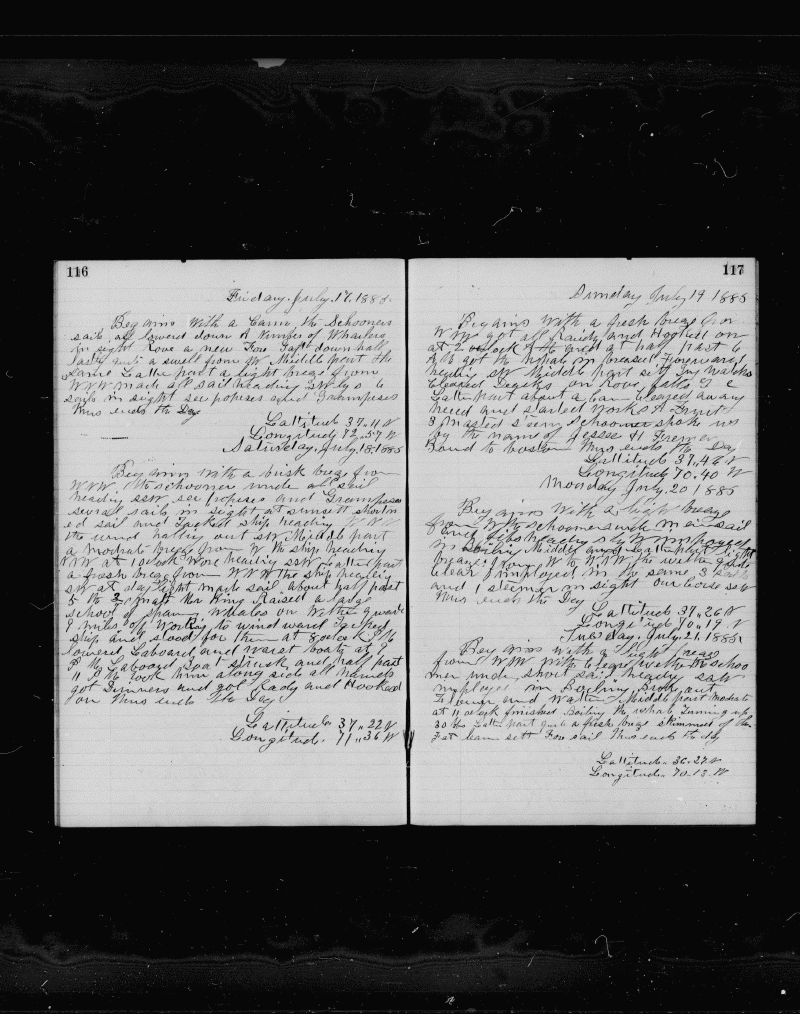 116
Friday. July. 17. 1885.
Beg ains With a Calm, the Schooners
sail all lowered down A Number of Whalers
in sight Rove a new Fore Gaft down hall
a swell from SW Middle part the
Same Latter part a light breeze from
WNW made all sail heading 5 to 6
sails in sight see poposes and Grampuses
thus ends the Day
Lattitude 37.11 N
Longitud 72.57 W
Saturday. July. 18. 1885
Beg ains with a brisk breeze from
WNW the schooner under all sail
heading SSW see poposes and Grampuses
several sails in sight at sunset Shorten
ed sail and Tacked ship heading
the wind out SW Middle part
a modrate breeze from W the ship heading
NW at 1 oclock Wore heading SSW Latter part
a fresh breeze from WNW the ship heading
SW at day light made sail about half past
5 the 2 mate Mr King Raised a large
school of sparm Whales on Wether quarter
9 miles off Working to wind ward Tacked
ship and stood for them at 8 oclock
lowered Laboard and Waist boats at 9
Laboard Boat struck and half past
11 took him along side all hands
got Dinners and got Ready and Hooked
on thus ends the Day
Lattitud. 37.22 N
Longitud. 71.36 W
117
Sunday July 19 1885
Beg ains with a fresh breeze from
WNW got all Raidy and Hooked on
at 2 oclock to Cut at half past 6
got the Whale in
heading SW Middle part set
Cleared Decks
Latter part about a Calm Cleared away
head and started Works A
3 Masted Schooner spoke us
by the name of Jessee H Freeman
Bound to boston thus ends the Day
Lattitud 37.48 N
Longitud 70.40 W
Monday July. 20 1885
Beg ains With a light breeze
from WNW schooner under main sail
and jibs heading employed
in boiling Middle and Latter part light
from W to WNW the wether
clear employed in the same 3
and 1 steamer in sight
thus ends the Day
Lattitud 37.26 N
Longetud 70.19 W
Tues day. July. 21. 1885.
Beg ains With a light breeze
from WNW With Clear wether the schoo
ner under short sail heady SSW
employed in Boiling
and Water Middle part modrate
at 11 oclock finished Boiling the whale Turning up
30 bbs Latter part a fresh breeze
sett Fore sail thus ends the day
Lattitud. 36.27 N
Longetud. 70.13. W